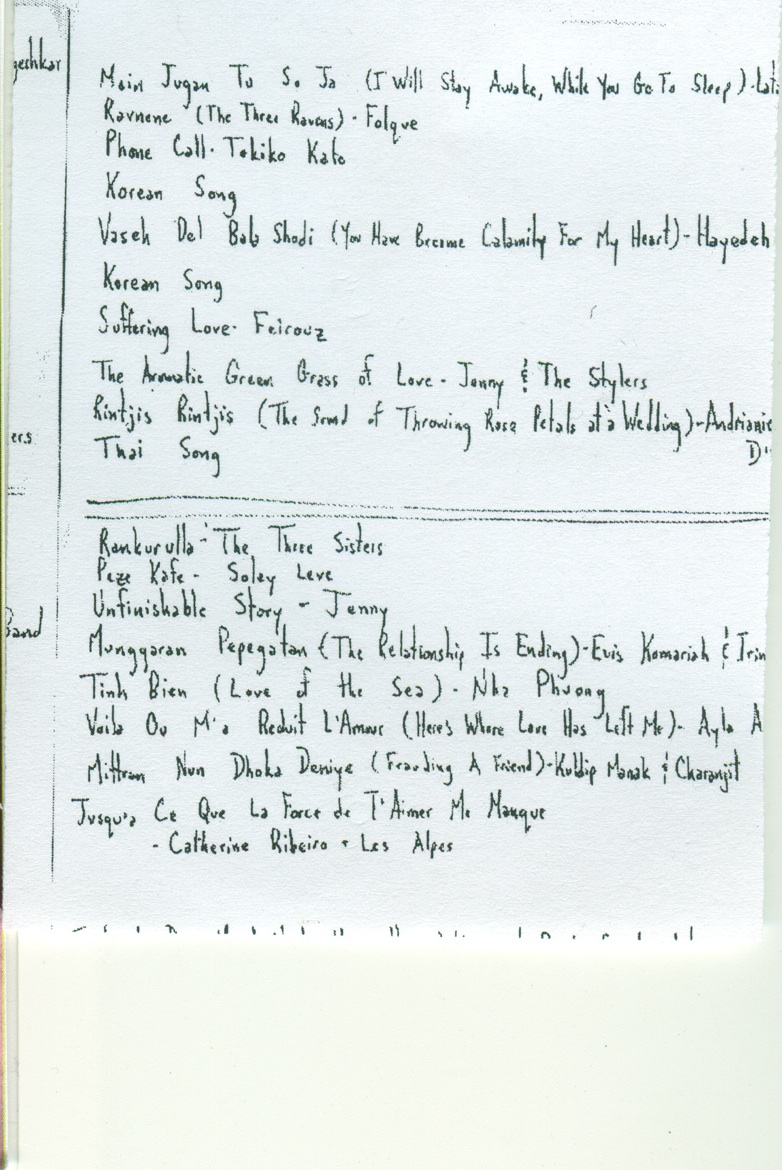 geshkar
Main Jugan Tu So Ja (I Will Stay Awake, While You Go To Sleep)-Lati
Ravnene (The Three Ravens) - Folque
Phone Call - Tokiko Kato
Korean Song
Vaseh Del Bala Shodi (You Have Become Calamity For My Heart)- Hayedeh
Korean Song
Suffering Love - Feirouz
The Aromatic Green Grass of Love - Jenny & The Stylers
Rintjis Rintjis (The Sound of Throwing Rose Petals at a Wedding)-Andrianie
ers
Thai Song
D
Rankurulla - The Three Sisters
Peze Kafe - Soley Leve
Unfinishable Story - Jenny
Band
Munggaran Pepegatan (The Relationship Is Ending)-Euis Komariah & Irin
Tinh Bien (Love of the Sea) - Nha Phuong
Voila Ou M'a Reduit L'Amour (Here's Where Love Has Left Me)- Ayla A
Mittran Nun Dhoka Deniye (Frauding A Friend)-Kuldip Manak & Charanjit
Jusqu'a Ce Que La Force de T'Aimer Me Manque
- Catherine Ribeiro + Les Alpes